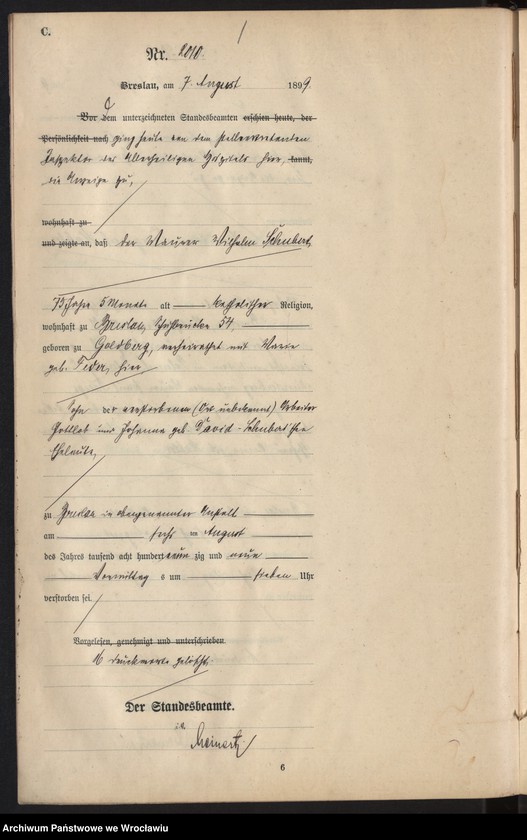 C.
Nr. 2010.
Breslau, am 7. August 1899.
Vor Dem unterzeichneten Standesbeamten erschien heute, der
Persönlichkeit nach ging heute von dem stellvertretenden
Inspektor des Allerheiligen Hospitals hier, kannt,
die Anzeige zu,
wohnhaft zu
und zeigte an, daß der Maurer Wilhelm Schubert,
75 Jahre 5 Monate alt katholischer Religion,
wohnhaft zu Breslau, Schuhbrücke 54,
geboren zu Goldberg, verheirathet mit Marie
geb. Feder, hier
Sohn der verstorbenen (Ort unbekannt) Arbeiter
Gottlob und Johanna geb. David-Schubert'schen
Eheleute,
zu Breslau in obengenannter Anstalt
am sechs ten August
des Jahres tausend acht hundert neun zig und neun
Vormittag s um sieben Uhr
verstorben sei.
Vorgelesen, genehmigt und unterschrieben
16 Druckworte gelöscht.
Der Standesbeamte.
i.V.
6
Archiwum Państwowe we Wrocławiu